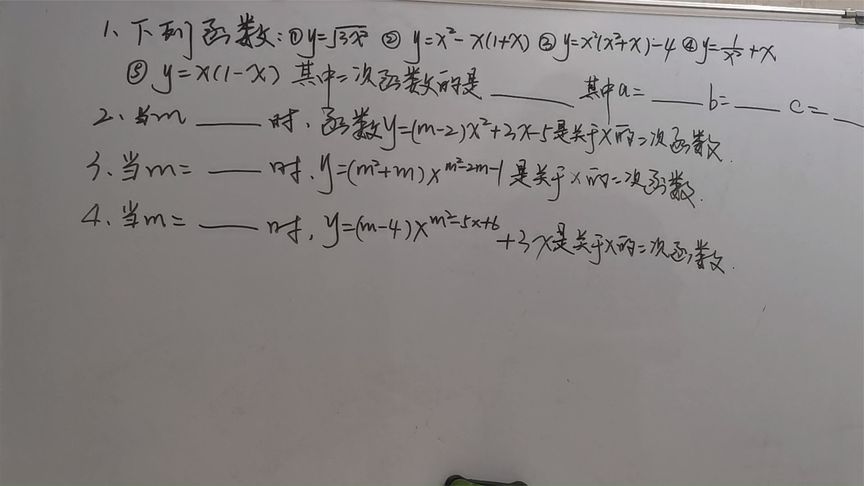 1、下列函数:①y=√3x² ② y=x²-x(1+x) ③ y=x²(x²+x)-4 ④ y=1/x²+x
⑤ y=x(1-x) 其中二次函数的是 ____ 其中a=____ b=____ c=____
2、当m ____ 时,函数y=(m-2)x²+3x-5是关于x的二次函数.
3、当m= ____ 时,y=(m²+m)x^{m²-2m-1}是关于x的二次函数.
4、当m= ____ 时,y=(m-4)x^{m²-5x+6}+3x是关于x的二次函数.